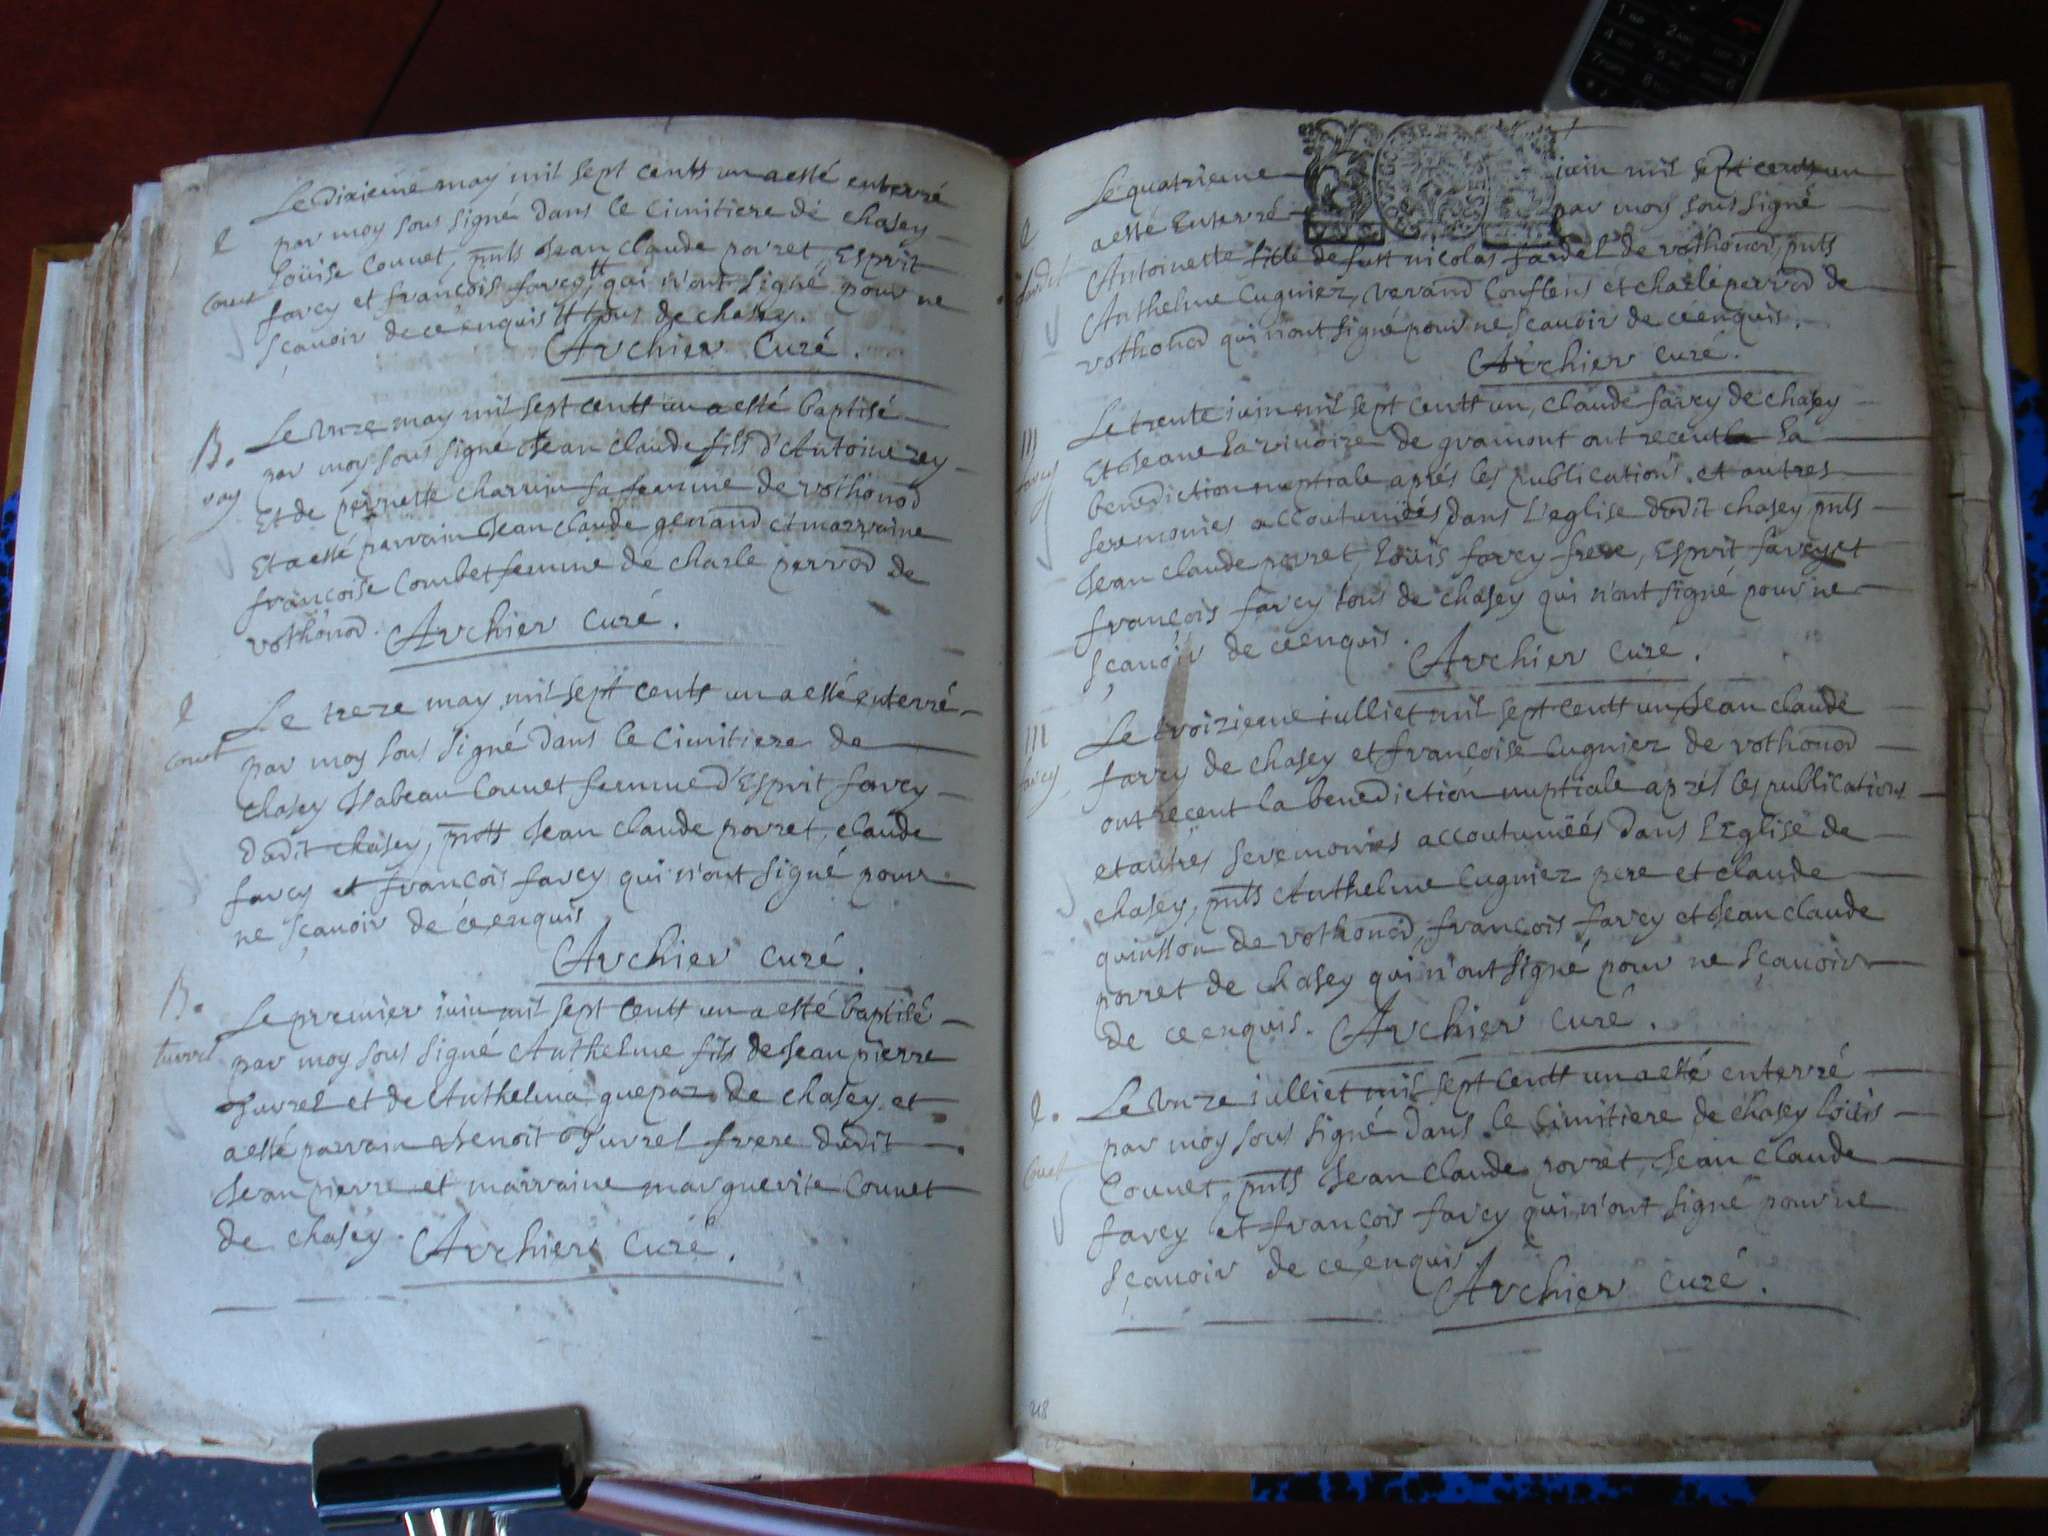 Le dixieme may mil sept centt un a esté enterré
e par moy sous signé dans le cimitiere de chasey
Loüise Couuet, pnts Jean Claude povret, Esprit
Couet
farcy et françois farcy tt qui n'ont signé pour ne
sçauoir de ce enquis tt tous de chasey.
Archier Curé.
Le vnze may mil sept centt un a esté baptisé
B. par moy sous signé Jean Claude fils d'Antoine rey
rey
Et de pernette charvin sa femme de vothonod
Et a esté parrain Jean Claude genand et marraine
françoise Combet femme de charle perrod de
vothonod. Archier Curé.
e Le treze may mil sept cents un a esté enterré
Couet par moy sous signé dans le Cimitiere de
chasey Isabeau Couuet femme d'Esprit farcy
dudit chasey, pntt Jean Claude porret, claude
farcy et françois farcy qui n'ont signé pour
ne sçauoir de ce enquis
Archier Curé.
B. Le premier iuin mil sept centt un a esté baptisé
turrel par moy sous signé Anthelme fils de Jean pierre
Turrel et de Anthelma guepaz de chasey et
a esté parrain Benoit Turrel frere dudit
Jean pierre et marraine marguerite Couuet
de chasey. Archier Curé.
Le quatrieme iuin mil sept centt un
e a esté Enterré par moy sous signé
fardel Antoinette fille de fust nicolas fardel de vothonod, pnts
Anthelme Cugniez, verand Couflens et charle perrod de
vothonod qui n'ont signé pour ne sçauoir de ce enquis.
Archier Curé.
m Le trente iuin mil sept centt un, claude farcy de chasey
farcy Et Jeane Lavinoire de gramont ont receut la
benediction nuptiale aprés les publications et autres
seremonies accoutumées dans L'eglise dudit chasey pnts
Jean claude porret, Loüis farcy frere, Esprit farcy et
françois farcy tous de chasey qui n'ont signé pour ne
sçauoir de ce enquis.
Archier Curé.
m Le troizieme iulliet mil sept centt un Jean claude
farcy farcy de chasey et françoise Cugniez de vothonod
ont receut la benediction nuptiale aprés les publications
et autres seremonies accoutumées dans L'Eglise de
chasey, pnts Anthelme Cugniez pere et claude
quinsson de vothonod, françois farcy et Jean Claude
porret de chasey qui n'ont signé pour ne sçauoir
de ce enquis. Archier Curé.
e. Le vnze iulliet mil sept centt un a esté enterré
par moy sous signé dans le Cimitiere de chasey Loüis
Couet Couuet, pnts Jean Claude porret, Jean Claude
farcy et françois farcy qui n'ont signé pour ne
sçauoir de ce enquis.
Archier Curé.
218